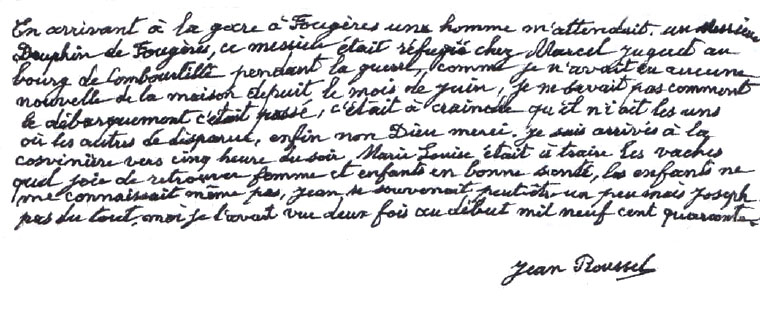 En arrivant à la gare à Fougères une homme m'attendait. un Messieur
Dauphin de Fougères, ce messieu était réfugié chez Marcel Juguet au
bourg de Combourtillé pendant la guerre, comme je n'avait eu aucune
nouvelle de la maison depuit le mois de juin, je ne savait pas comment
le débarquement c'était passé, c'était à craindre qu'il n'i ait les uns
où les autres de disparue, enfin non Dieu merci. je suis arrivés à la
convinière vers cinq heure du soir, Marie Louise était à traire les vaches
quel joie de retrouver femme et enfants en bonne santé, les enfants ne
me connaissait même pas, Jean se souvenait peutêtre un peu mais Joseph
pas du tout, moi je l'avait vue deux fois au début mil neuf cent quarante.
Jean Roussel